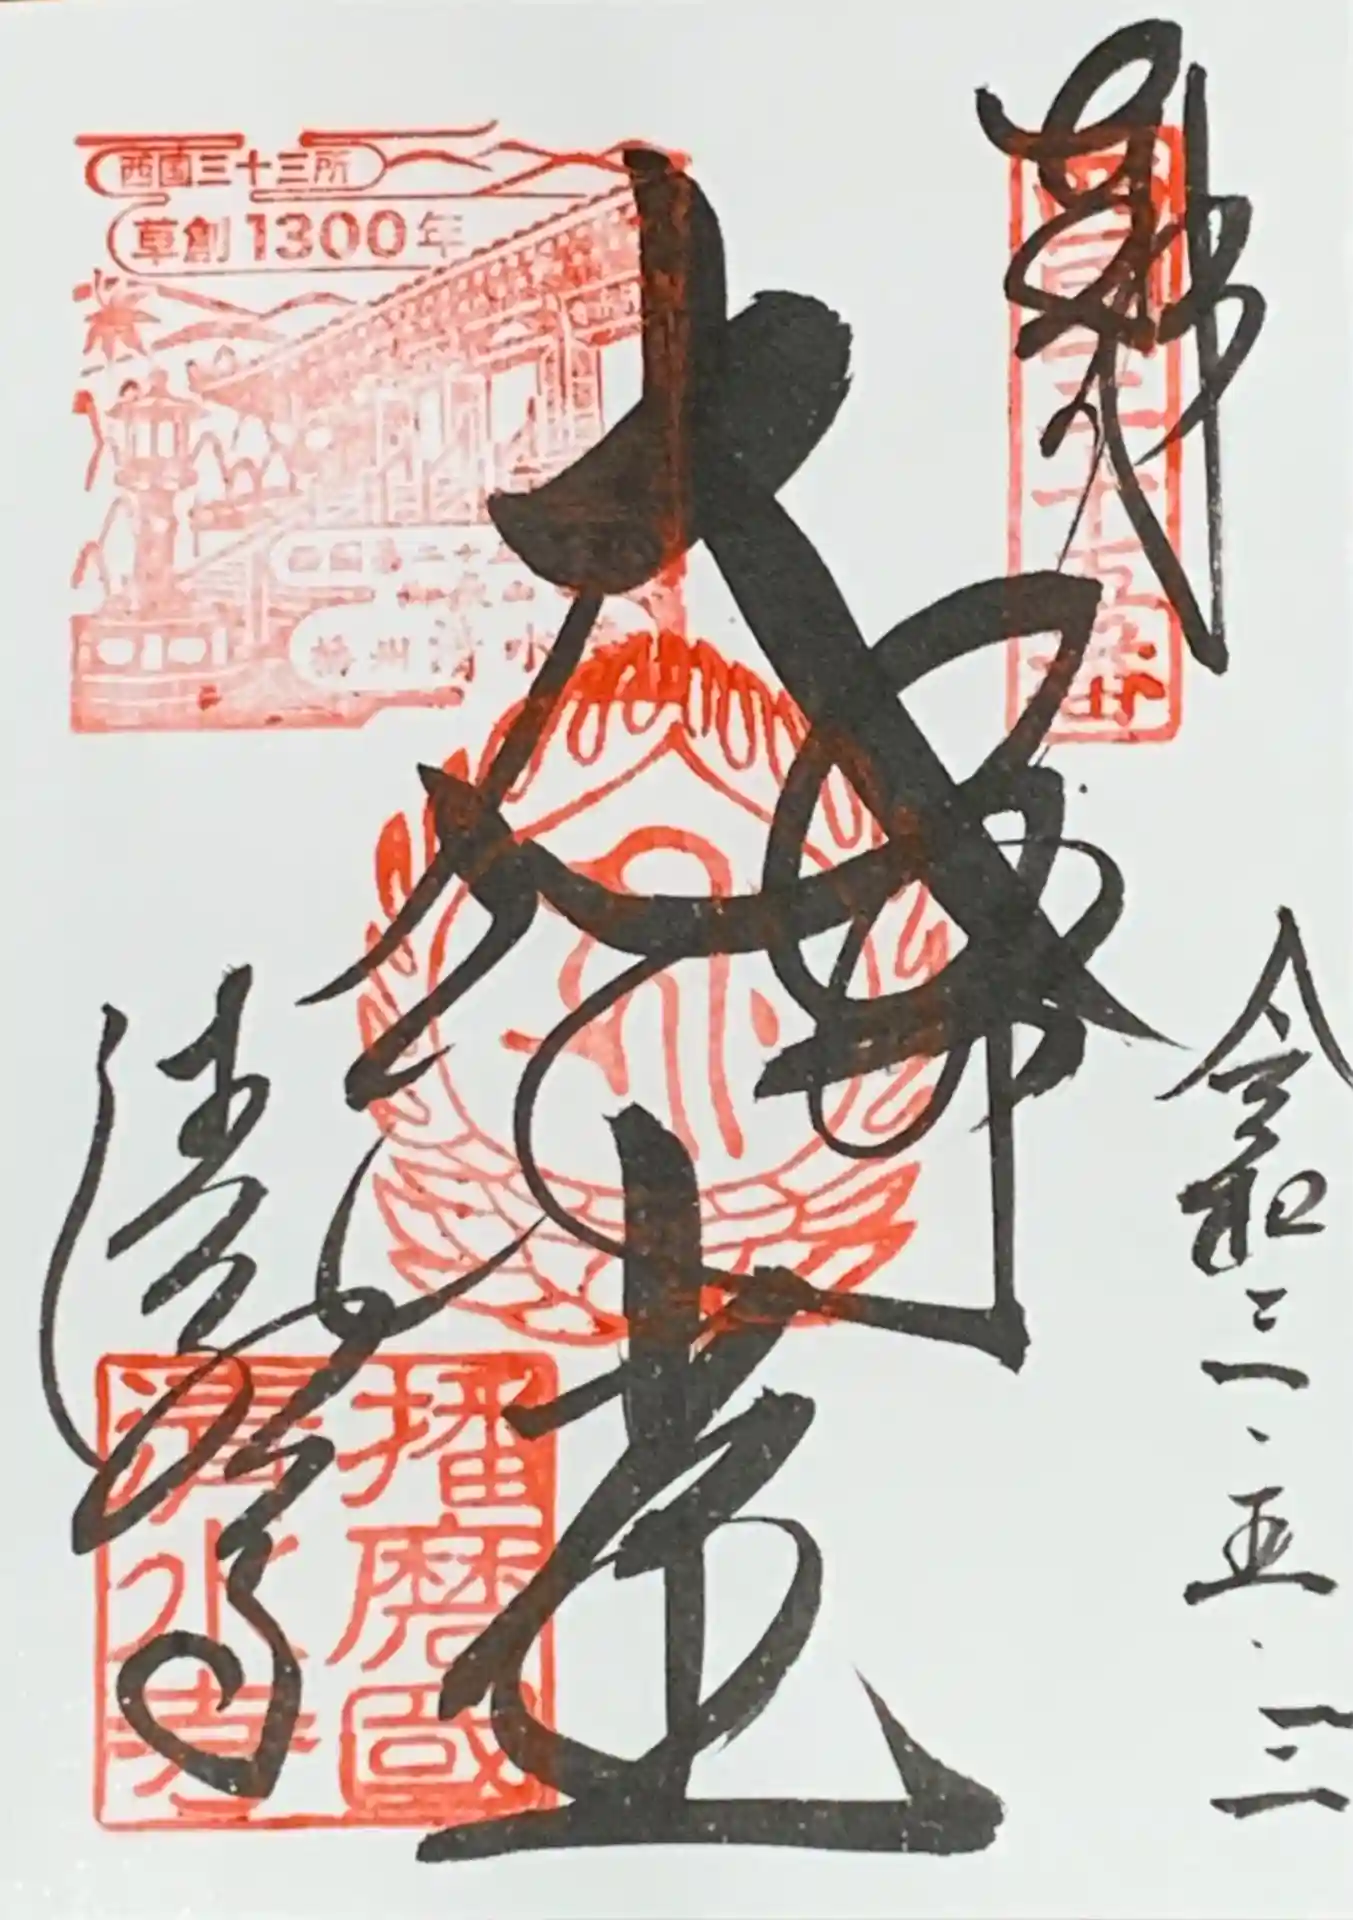 奉拝
西国二十五番
令和三・五・三
西国三十三所
草創1300年
西国第二十五
御嶽山
播州清水
大悲殿
播磨國
清水寺
清水寺